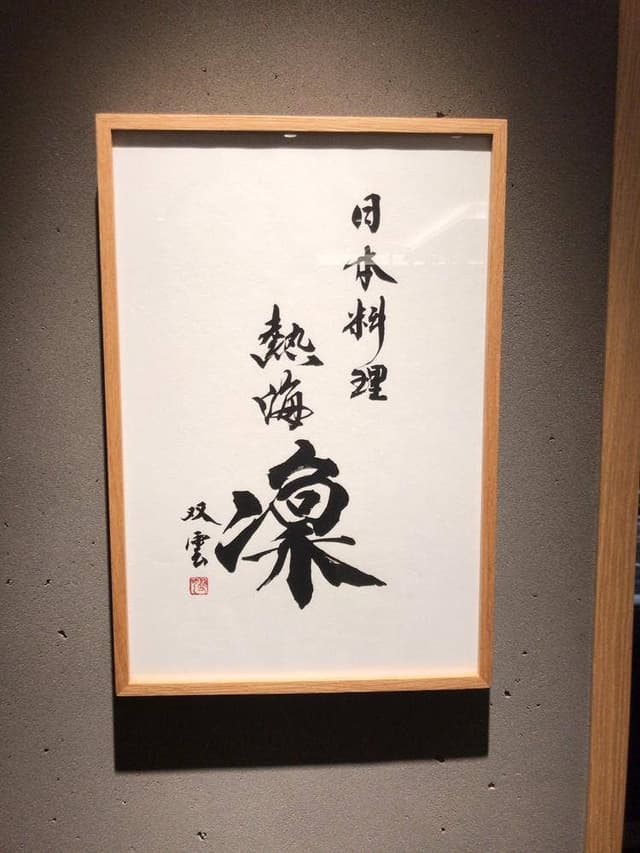 日本料理
熱海
凛
双雲